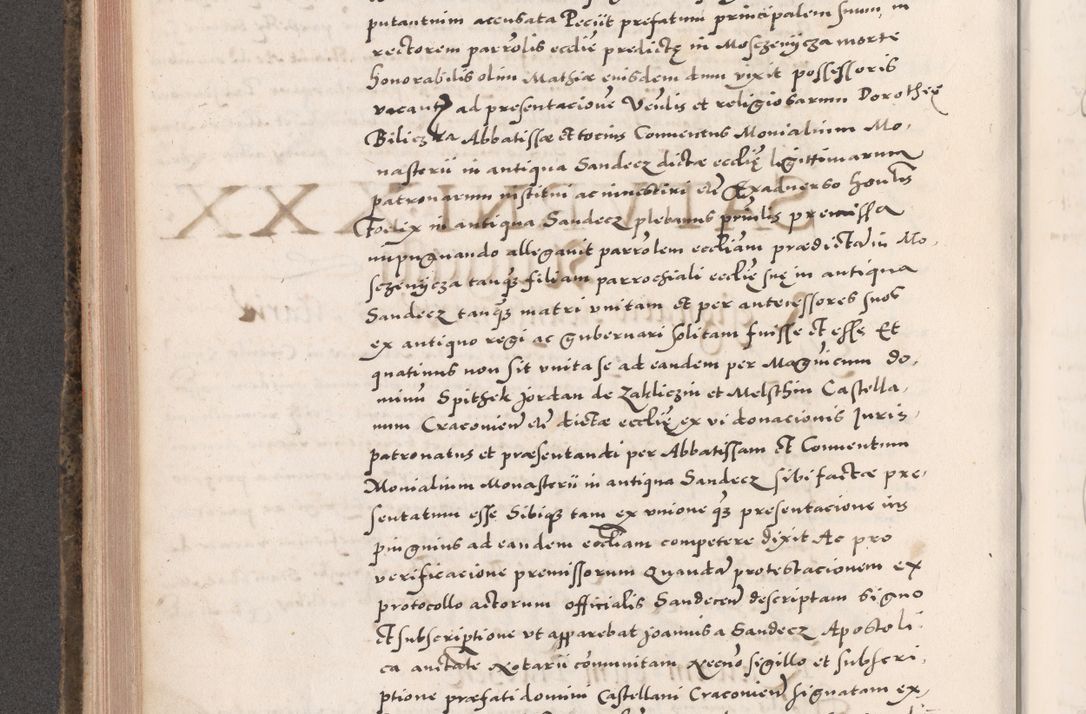 putantium accusata Peciit prefatum principalem suum, in
rectorem parrolis ecclie predictę in Mosczenycza morte
honorabilis olim Mathiæ eiusdem dum vixit possessoris
vacantem ad presentacione Venlis et religiosarum Dorotheę
Biliczka Abbatissæ et tocius Conuentus Monialium Mo,
nasterii in antiqua Sandecz dictæ ecclię ligittimarum
patronarum institui ac inuestiri etc Ex aduerso honlis
Foelix in antiqua Sandecz plebanus principlis premissa
impugnando allegauit parrolem eccliam prædictam in Mo,
sczenycza tanq3 filiam parrochiali ecclie suę in antiqua
Sandecz tanq3 matri vnitam et per antecessores suos
ex antiquo regi ac gubernari solitam fuisse et esse Et
quatinus non sit vnita se ad eandem per Magnicum do,
minum Spithek Jordan de Zakliczin et Melsthin Castella,
num Cracouien etc dictæ ecclię ex vi donacionis Juris
patronatus et præsentandi per Abbatissam et Conuentum
Monialium Monasterii in antiqua Sandecz sibi factæ pre,
sentatum esse Sibiq3 tam ex vnione q3 presentacione ius
pinguius ad eandem eccliam competere dixit Ac pro
verificacione premissorum Quandam protestacionem ex
protocollo actorum officialis Sandecen descriptam Signo
et subscriptione vt apparebat Joannis a Sandecz Apostoli,
ca auctate Notarii communitam Necno sigillo et subscri,
ptione præfati domini Castellani Cracouien signatam ex,